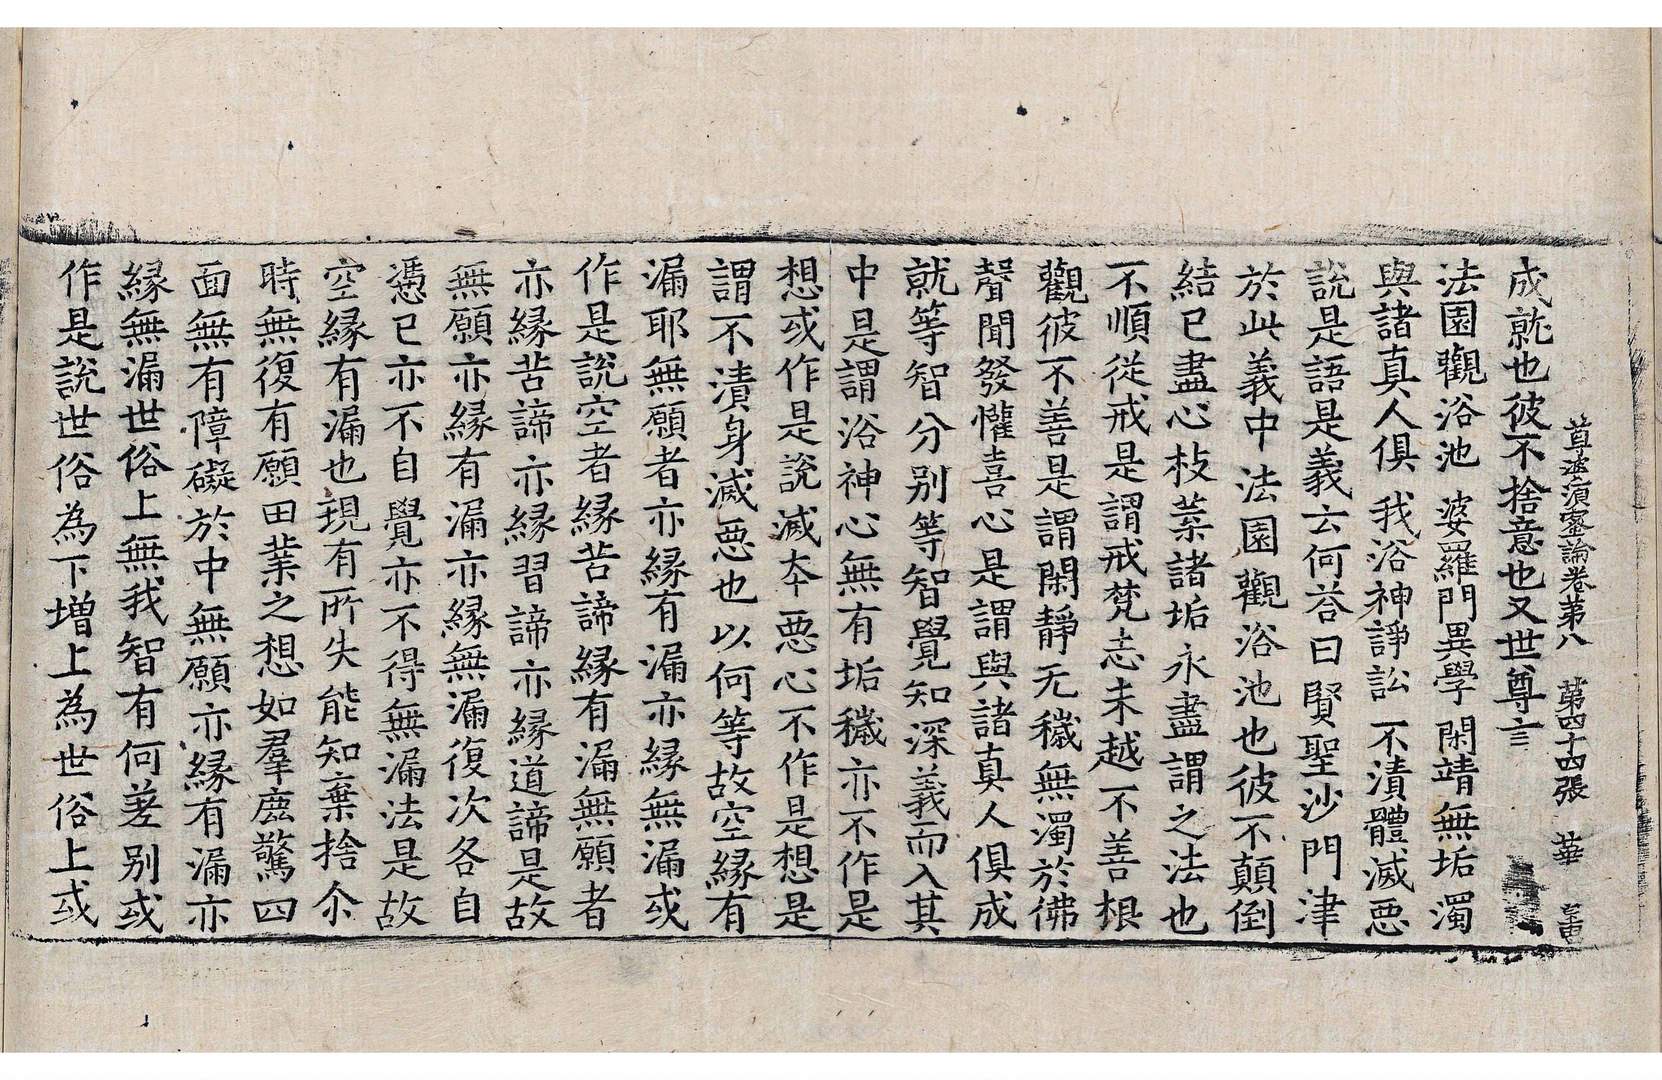 尊婆須蜜論卷第八 第四十四張 華
成就也彼不捨意也又世尊言
法園觀浴池 婆羅門異學 閑靖無垢濁
與諸真人俱 我浴神諍訟 不漬體滅惡
說是語是義云何荅曰賢聖沙門津
於此義中法園觀浴池也彼不顛倒
結已盡心枝葉諸垢永盡謂之法也
不順從戒是謂戒梵志未越不善根
觀彼不善是謂閑靜无穢無濁於佛
聲聞發懽喜心是謂與諸真人俱成
就等智分別等智覺知深義而入其
中是謂浴神心無有垢穢亦不作是
想或作是說滅本惡心不作是想是
謂不漬身滅惡也以何等故空緣有
漏耶無願者亦緣有漏亦緣無漏或
作是說空者緣苦諦緣有漏無願者
亦緣苦諦亦緣習諦亦緣道諦是故
無願亦緣有漏亦緣無漏復次各自
憑已亦不自覺亦不得無漏法是故
空緣有漏也現有所失能知棄捨尒
時無復有願田業之想如羣鹿驚四
面無有障礙於中無願亦緣有漏亦
緣無漏世俗上無我智有何差別或
作是說世俗為下增上為世俗上或